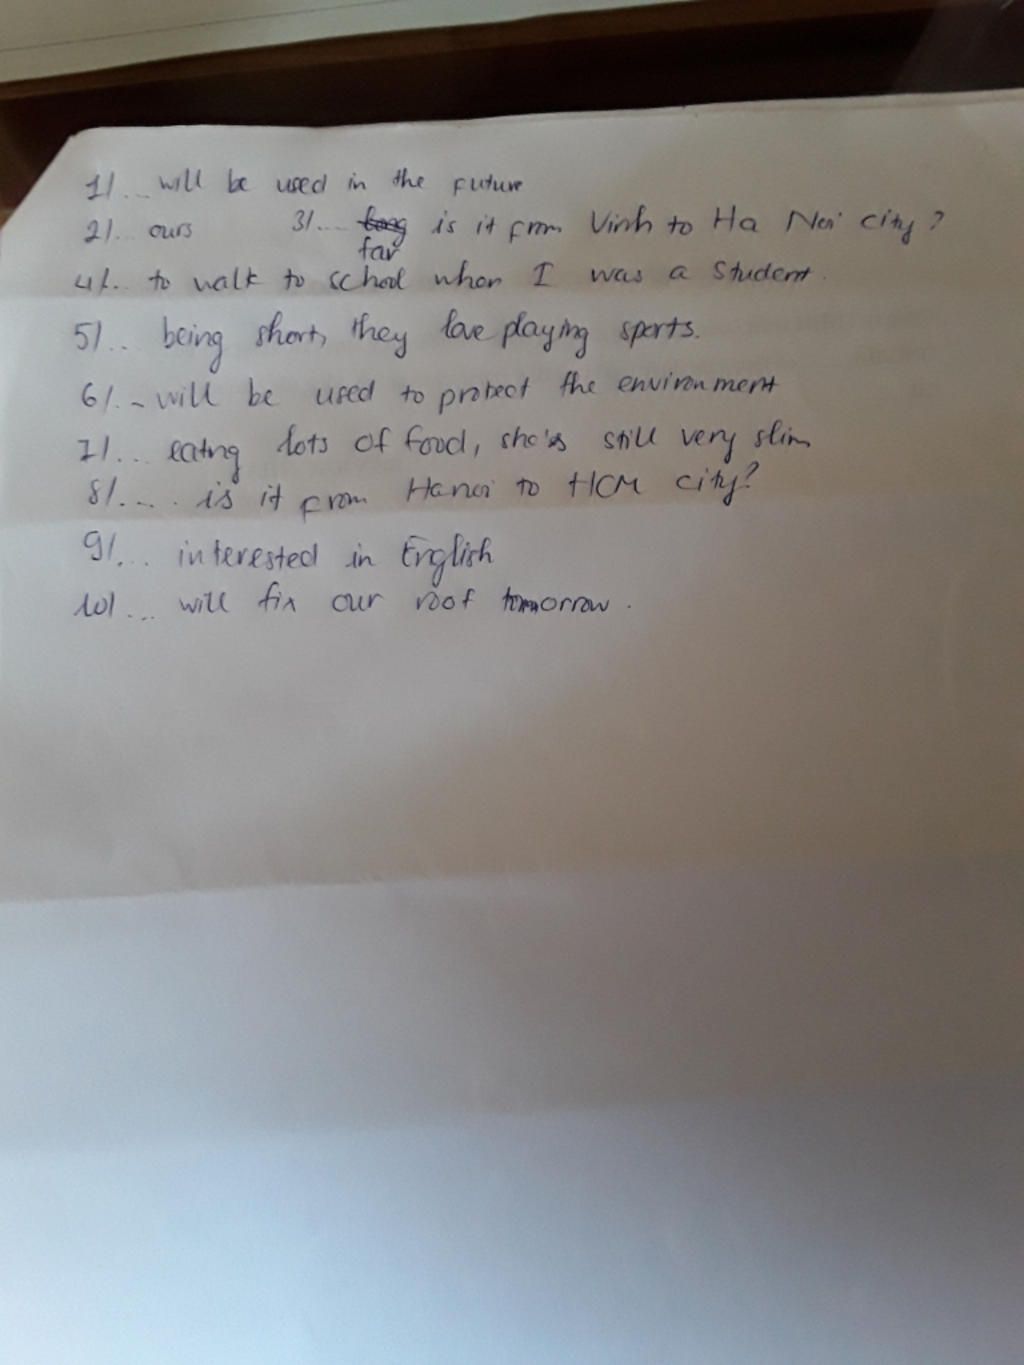 1/... will be used in the future
2/... ours 3/.... is it from Vinh to Ha Noi city?
far
4/.. to walk to school when I was a student.
5/... being short, they love playing sports.
6/.. will be used to protect the environment
7/... eating lots of food, she's still very slim
8/.... is it from Hanoi to HCM city?
9/... interested in English
10/... will fix our roof tomorrow.